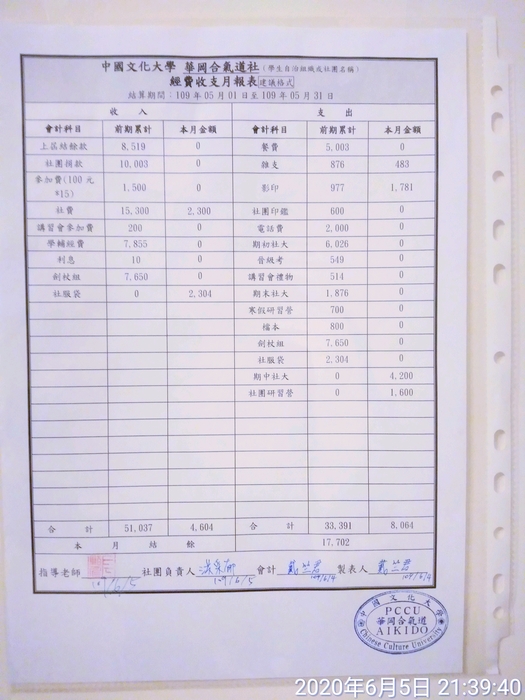 中國文化大學 華岡合氣道社(學生自治組織及社團名稱)
經費收支月報表 建議格式
結算期間：109 年 05 月 01 日至 109 年 05 月 31 日
收 入 支 出
會計科目 前期累計 本月金額 會計科目 前期累計 本月金額
上屆結餘款 8,519 0 餐費 5,003 0
社團捐款 10,003 0 雜支 876 483
參加費(100 元*15) 1,500 0 影印 977 1,781
社費 15,300 2,300 社團印鑑 600 0
講習會參加費 200 0 電話費 2,000 0
學輔經費 7,855 0 期初社大 6,026 0
利息 10 0 晉級考 549 0
劍杖組 7,650 0 講習會禮物 514 0
社服袋 0 2,304 期末社大 1,876 0
寒假研習營 700 0
檔本 800 0
劍杖組 7,650 0
社服袋 2,304 0
期中社大 0 4,200
社團研習營 0 1,600
合 計 51,037 4,604 合 計 33,391 8,064
本 月 結 餘 17,702
指導老師 社團負責人 會計 戴竺君 製表人 戴竺君
109/6/5 109/6/5 109/6/4 109/6/4
中國文化大學
PCCU
華岡合氣道
AIKIDO
Chinese Culture University
2020年6月5日 21:39:40